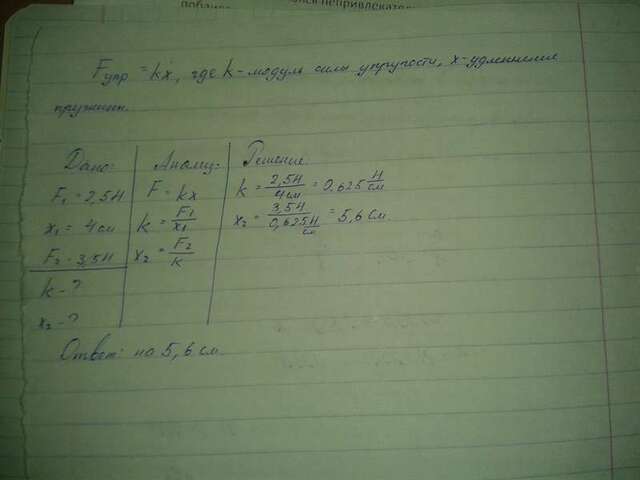 лся непривлекател
Fупр = kx, где k - модуль силы упругости, x - удлинение
пружины.
Дано: Анализ: Решение:
F₁ = 2,5Н F = kx k = 2,5Н/4см = 0,625 Н/см
x₁ = 4см k = F₁/x₁ x₂ = 3,5Н/0,625Н/см = 5,6 см.
F₂ = 3,5Н x₂ = F₂/k
k - ?
x₂ - ?
Ответ: на 5,6 см.